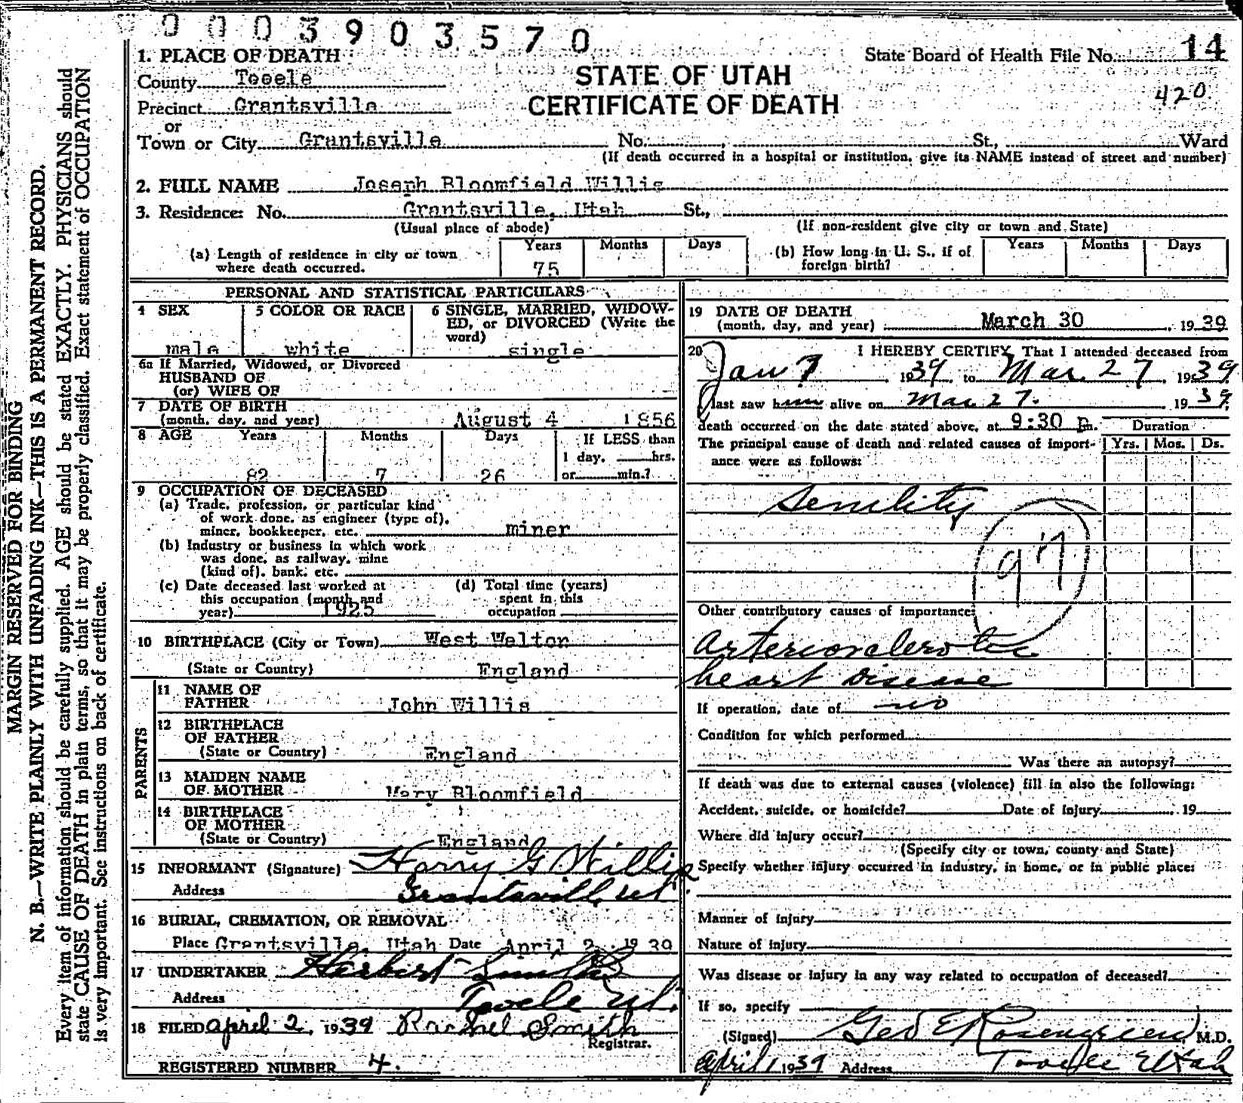 0003903570
1. PLACE OF DEATH
State Board of Health File No. 14
County Tooele
STATE OF UTAH
420
Precinct Grantsville
CERTIFICATE OF DEATH
or
Town or City Grantsville No. St., Ward
(If death occurred in a hospital or institution, give its NAME instead of street and number)
2. FULL NAME Joseph Bloomfield Willis
3. Residence: No. Grantsville, Utah St.,
(Usual place of abode) (If non-resident give city or town and State)
(a) Length of residence in city or town where death occurred. Years 75 Months Days
(b) How long in U. S., if of foreign birth? Years Months Days
PERSONAL AND STATISTICAL PARTICULARS
4 SEX male
5 COLOR OR RACE white
6 SINGLE, MARRIED, WIDOW-
ED, or DIVORCED (Write the
word) single
6a If Married, Widowed, or Divorced
HUSBAND OF
(or) WIFE OF
7 DATE OF BIRTH
(month, day, and year) August 4 1856
8 AGE Years Months Days If LESS than
1 day, hrs.
82 7 26 or min.?
9 OCCUPATION OF DECEASED
(a) Trade, profession, or particular kind
of work done, as engineer (type of),
miner, bookkeeper, etc. miner
(b) Industry or business in which work
was done, as railway, mine
(kind of), bank, etc.
(c) Date deceased last worked at
this occupation (month and
year) 1925
(d) Total time (years)
spent in this
occupation
10 BIRTHPLACE (City or Town) West Walton
(State or Country) England
PARENTS
11 NAME OF
FATHER John Willis
12 BIRTHPLACE
OF FATHER
(State or Country) England
13 MAIDEN NAME
OF MOTHER Mary Bloomfield
14 BIRTHPLACE
OF MOTHER
(State or Country) England
15 INFORMANT (Signature) Harry G Willis
Address Grantsville, Ut.
16 BURIAL, CREMATION, OR REMOVAL
Place Grantsville, Utah Date April 2, 1939
17 UNDERTAKER Herbert Smith
Address Tooele Ut.
18 FILED april 2, 1939 Rachel Smith
Registrar.
REGISTERED NUMBER 4.
19 DATE OF DEATH
(month, day, and year) March 30, 1939
20 I HEREBY CERTIFY, That I attended deceased from
Jan 7 1939 to Mar. 27, 1939
I last saw him alive on Mar 27. 1939
death occurred on the date stated above, at 9:30 p.m.
Duration
The principal cause of death and related causes of import-
ance were as follows:
Yrs. Mos. Ds.
Senility
97
Other contributory causes of importance:
Arteriosclerotic
heart disease
If operation, date of no
Condition for which performed
Was there an autopsy?
If death was due to external causes (violence) fill in also the following:
Accident, suicide, or homicide? Date of injury 19
Where did injury occur?
(Specify city or town, county and State)
Specify whether injury occurred in industry, in home, or in public place:
Manner of injury
Nature of injury
Was disease or injury in any way related to occupation of deceased?
If so, specify
(Signed) Geo E Rosengreen, M.D.
april 1, 1939 Address Tooele Utah
MARGIN RESERVED FOR BINDING
N. B.—WRITE PLAINLY WITH UNFADING INK—THIS IS A PERMANENT RECORD.
Every item of information should be carefully supplied. AGE should be stated EXACTLY. PHYSICIANS should
state CAUSE OF DEATH in plain terms, so that it may be properly classified. Exact statement of OCCUPATION
is very important. See instructions on back of certificate.